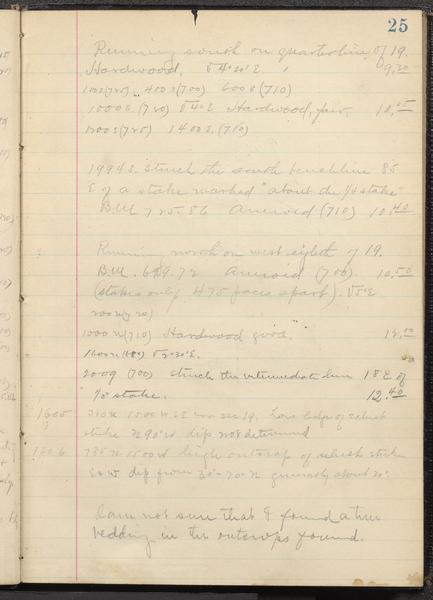 25
Running south on quarterline of 19.
Hardwood. V 4°20'E. 9.30
100 S (725) 400 S (700) 600 S (710)
1000 S (720) V 4°E Hardwood, fair.
1200 S (725) 1400 S. (710)
1994 S. struck the south benchline 85
E of a stake marked "about the 1/4 stake"
B.M. 725.86 Aneroid (710) 10.40
Running north on west eighth of 19.
B.M. 689.72 Aneroid (700). 10.50
(stakes only 475 paces apart). V 5°E
1000 N (710) Hardwood good. 12.00
1600 N V 2°30'E.
2009 (700) struck the intermediate line 18 E. of
1/8 stake. 12.40
1605 310 N 1500 W SE cor. sec 19. Low ledge of schist
strike N 90° W dip not determined
1606 735 N 1500 W high outcrop of schist strike
E & W dip from 30°-70° N generally about
I am not sure that I found a true
bedding in the outcrops found.